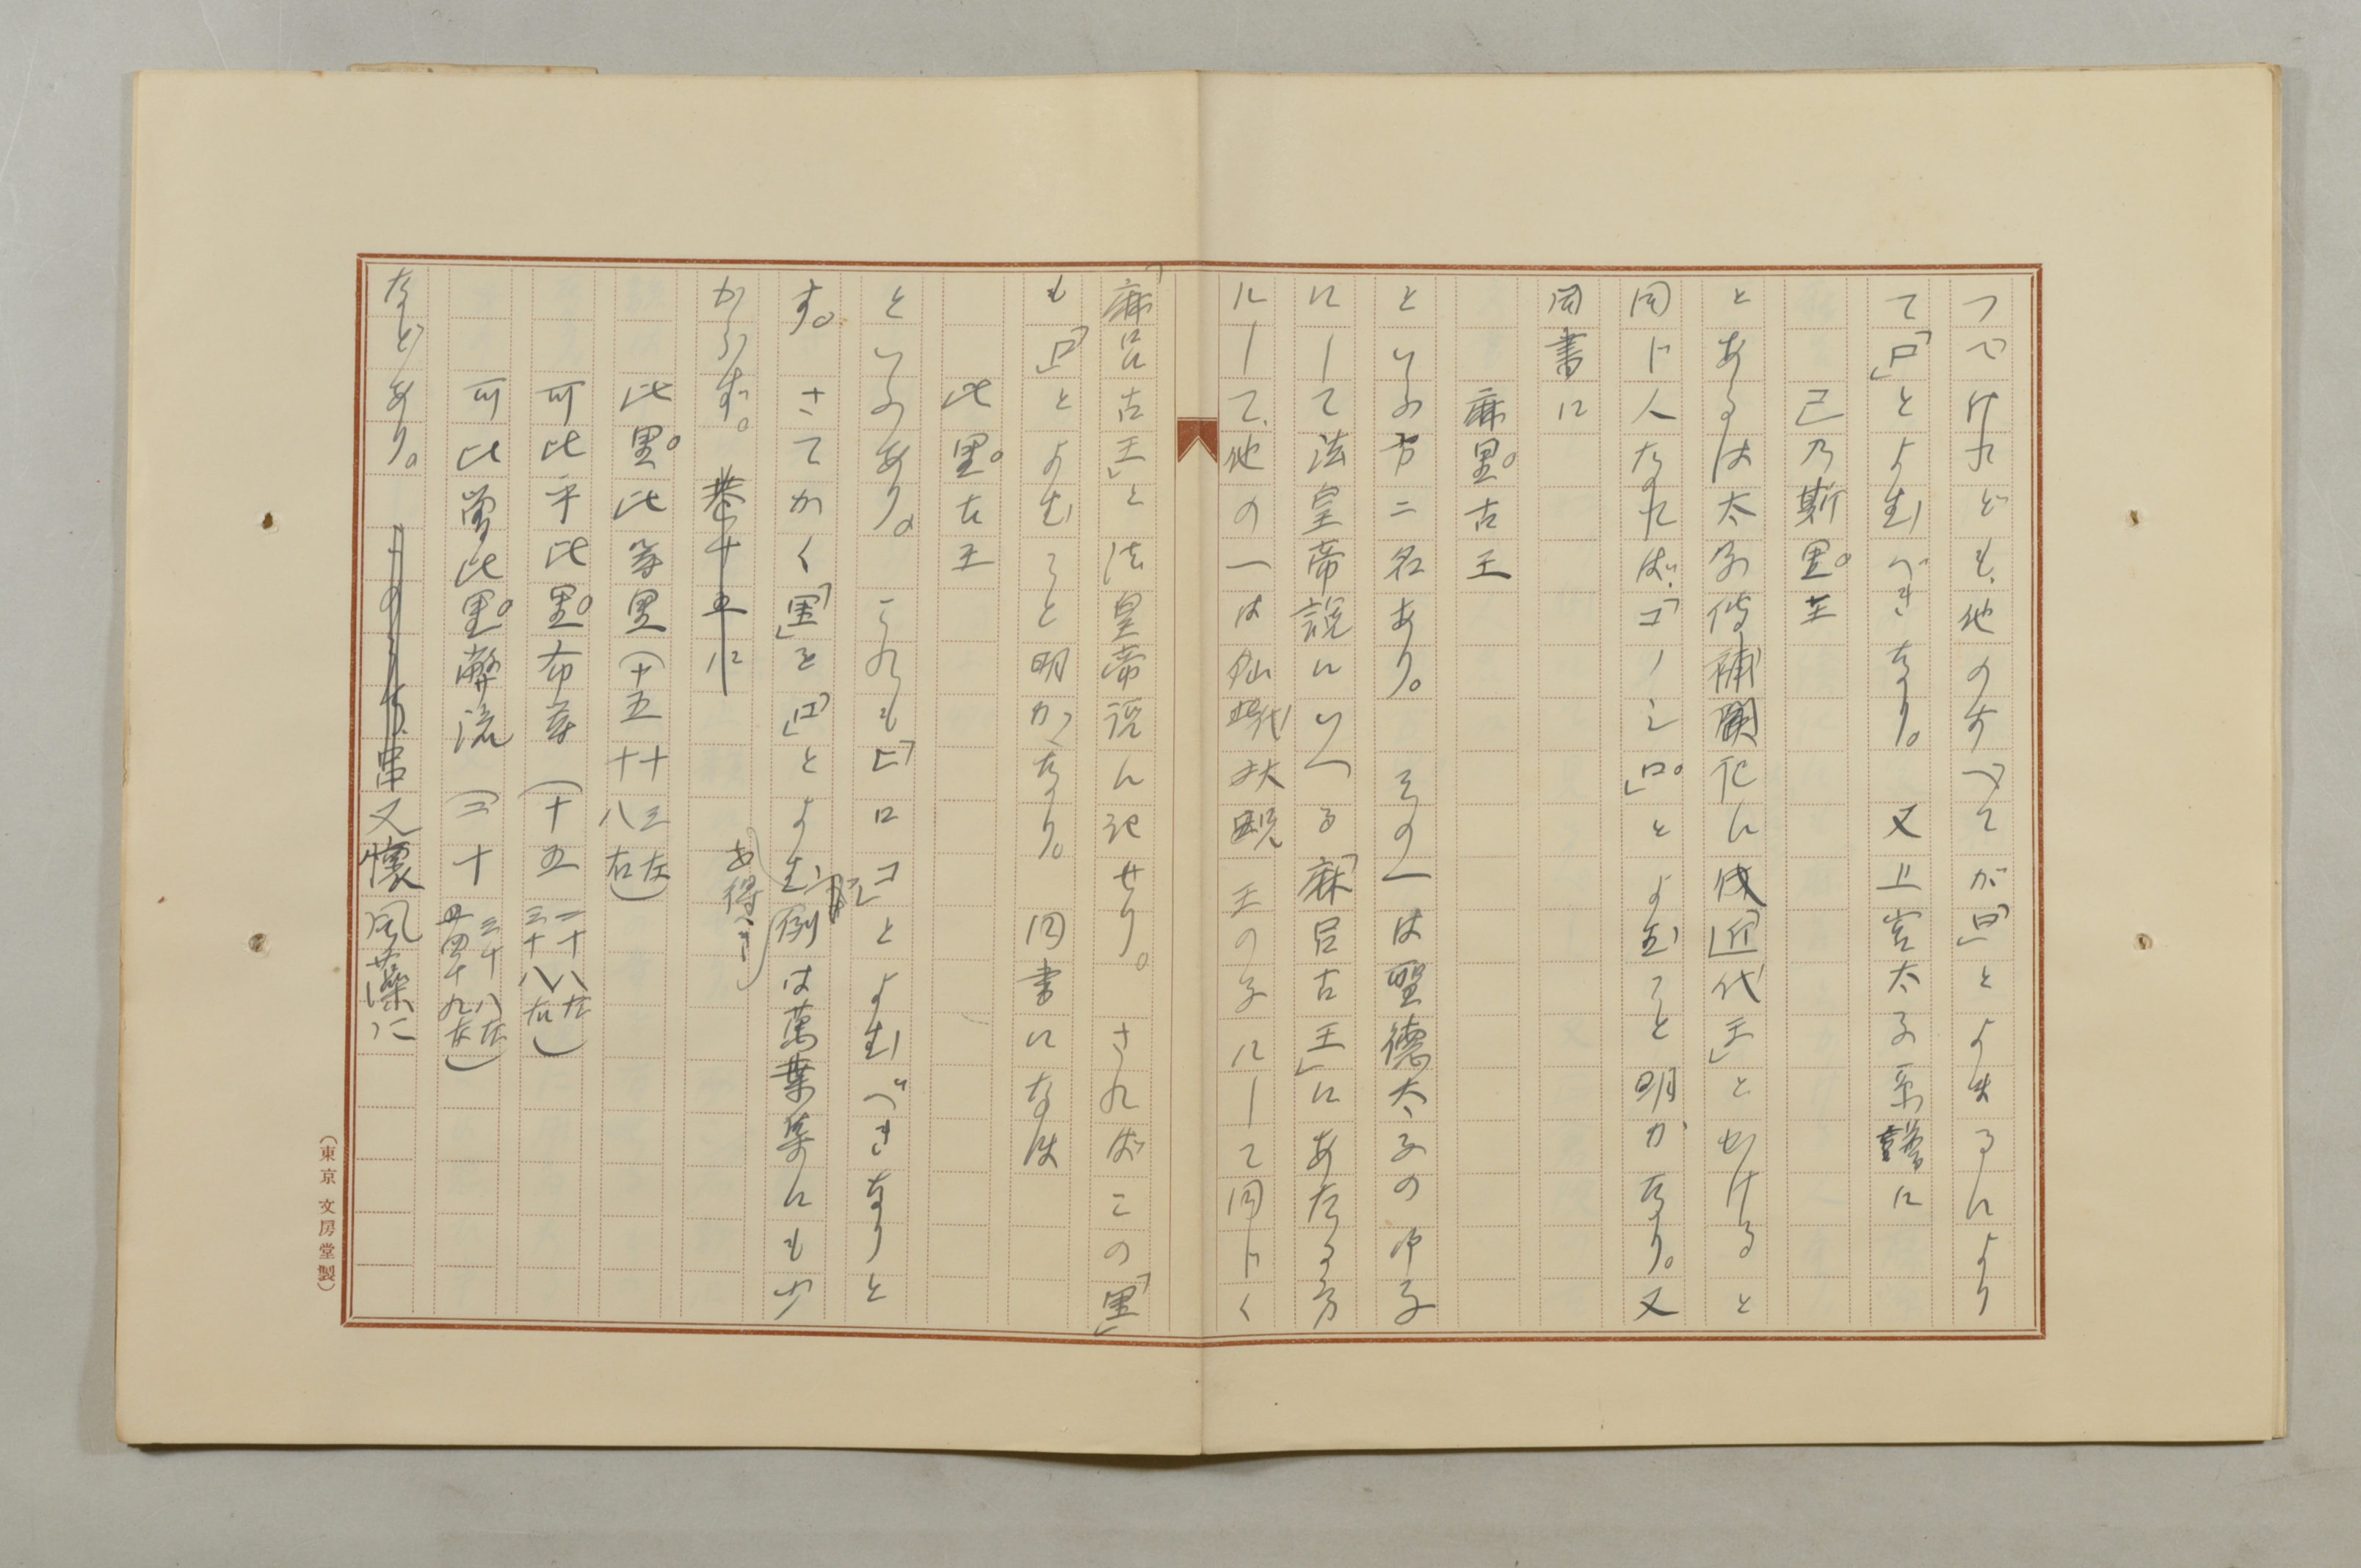 つべけれども、他のすべてが「ロ」とよまるによりて「ロ」とよむべきなり。 又上宮太子系譜に
己乃斯里。王
とあるは太子傳補闕記に伐「近代王」とせけると
同ド人なれば、「コノシロ。」とよむこと明かなり。又
同書に
麻里。古王
といふ方二名あり。 その一は聖德太子の御子
にして法皇帝説にいへる「麻呂古王」にあたる方
にして、他の一は
王の子にして同じく
「麻呂古王」と法皇帝説に記せり。 さればこの「里」
も「ロ」とよむこと明かなり。 同書になほ
此里。古王
といふあり。 これも「ヒロコ」とよむべきなりと
す。 さてかく「里」を「ロ」とよむ例は萬葉集にも少
からず。
あ得べき
此里。比等里(十五 十三左 十八右)
可比乎比里。布等(十五 二十八左 三十八右)
可比曽比里。弊流(二十
なとあり。 又懷風藻に
(東京 文房堂製)